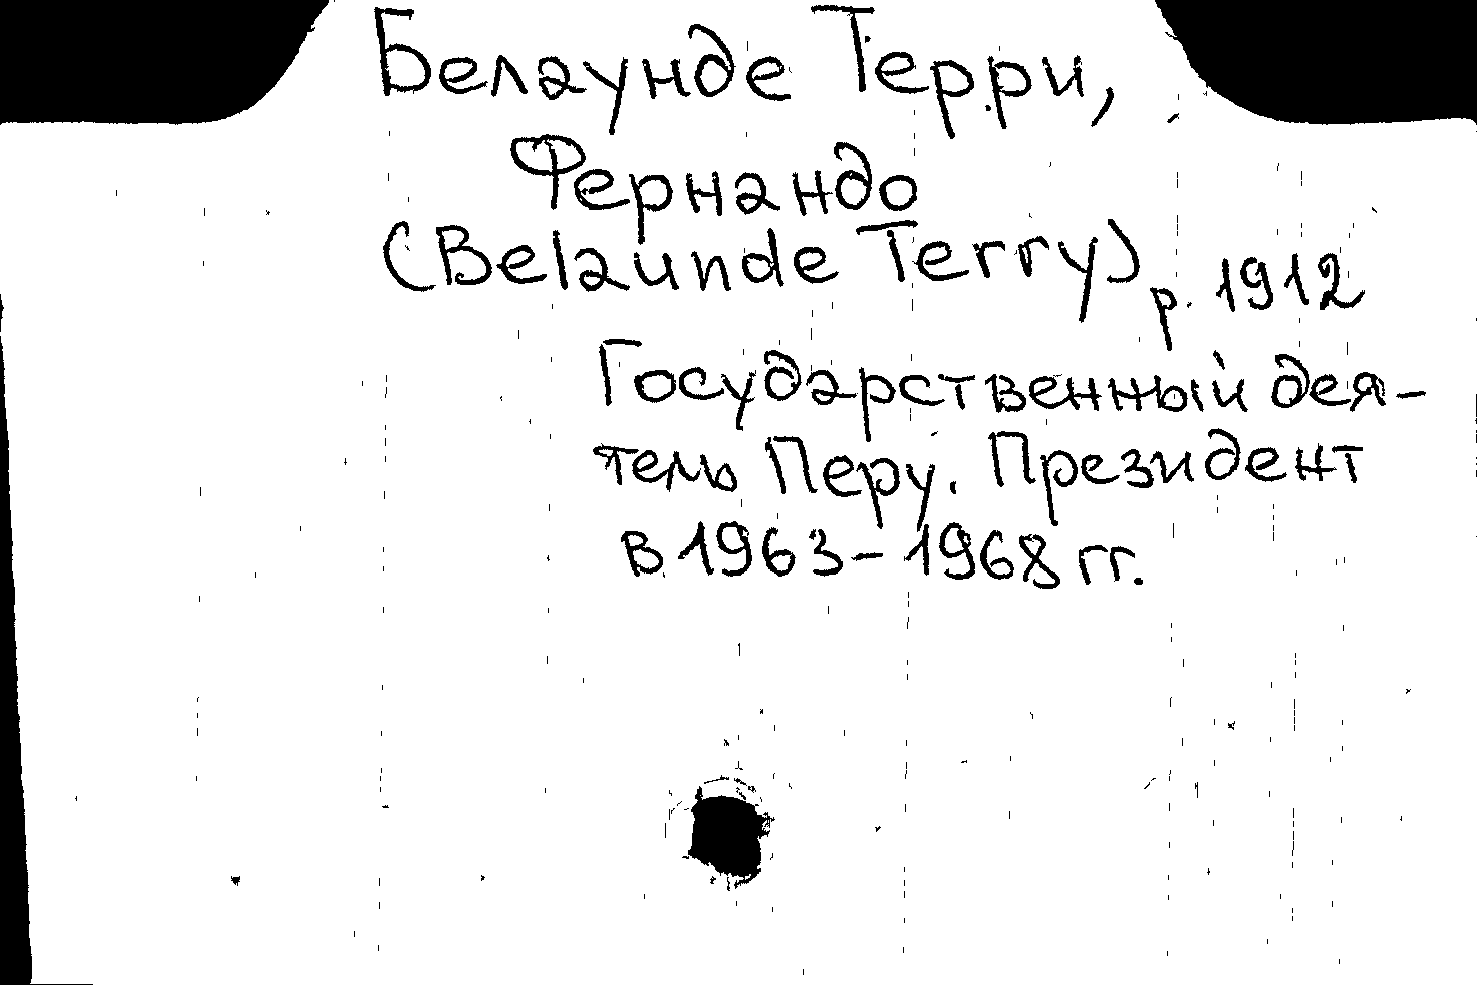 Белаунде Терри,
Фернандо
(Belaunde Terry)
р. 1912
Государственный дея-
тель Перу. Президент
в 1963-1968 гг.